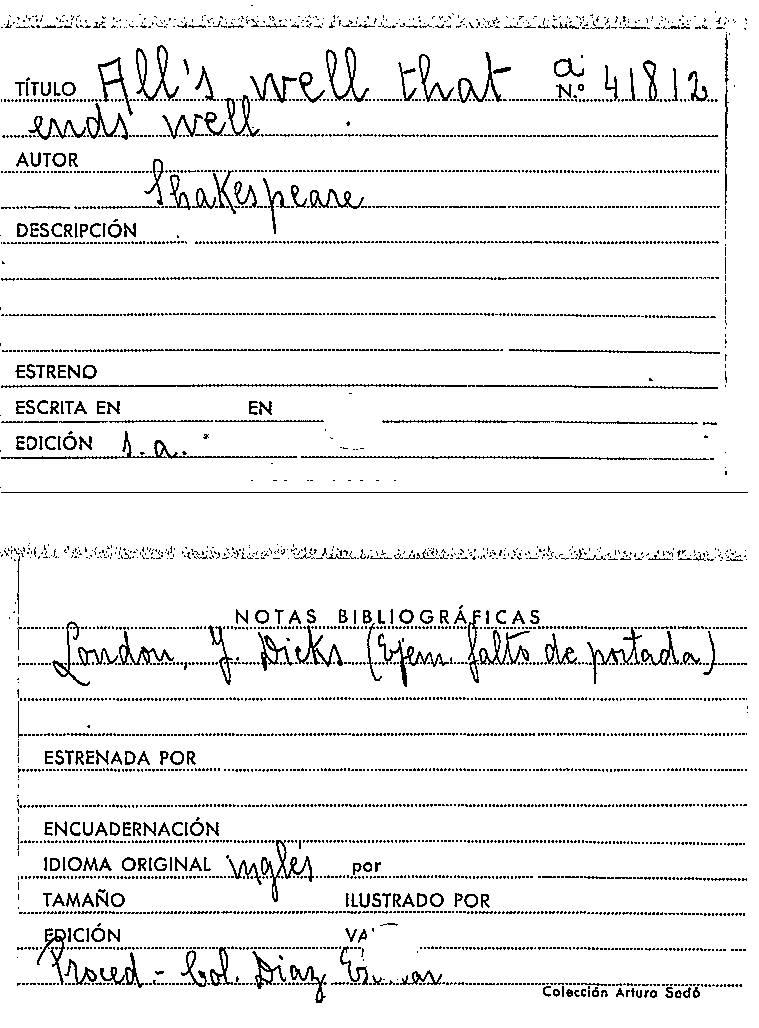 TÍTULO All's well that a
N.º 41812
ends well
AUTOR
Shakespeare
DESCRIPCIÓN
ESTRENO
ESCRITA EN EN
EDICIÓN s.a.
NOTAS BIBLIOGRÁFICAS
London, J. Dicks (Ejem. falto de portada)
ESTRENADA POR
ENCUADERNACIÓN
IDIOMA ORIGINAL inglés por
TAMAÑO ILUSTRADO POR
EDICIÓN
Proced - Col. Diaz
Colección Arturo Sedó